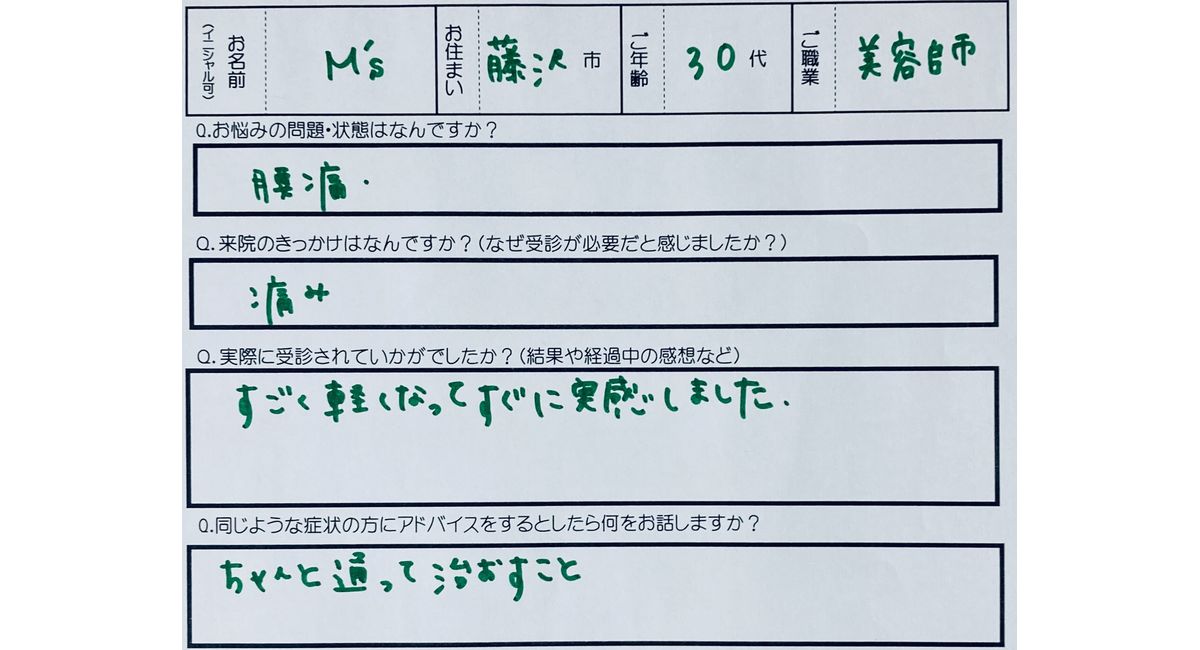 お名前(イニシャル可) M's お住まい 藤沢市 ご年齢 30代 ご職業 美容師
Q.お悩みの問題・状態はなんですか?
腰痛.
Q.来院のきっかけはなんですか?(なぜ受診が必要だと感じましたか?)
痛み
Q.実際に受診されていかがでしたか?(結果や経過中の感想など)
すごく軽くなってすぐに実感しました.
Q.同じような症状の方にアドバイスをするとしたら何をお話しますか?
ちゃんと通って治おすこと